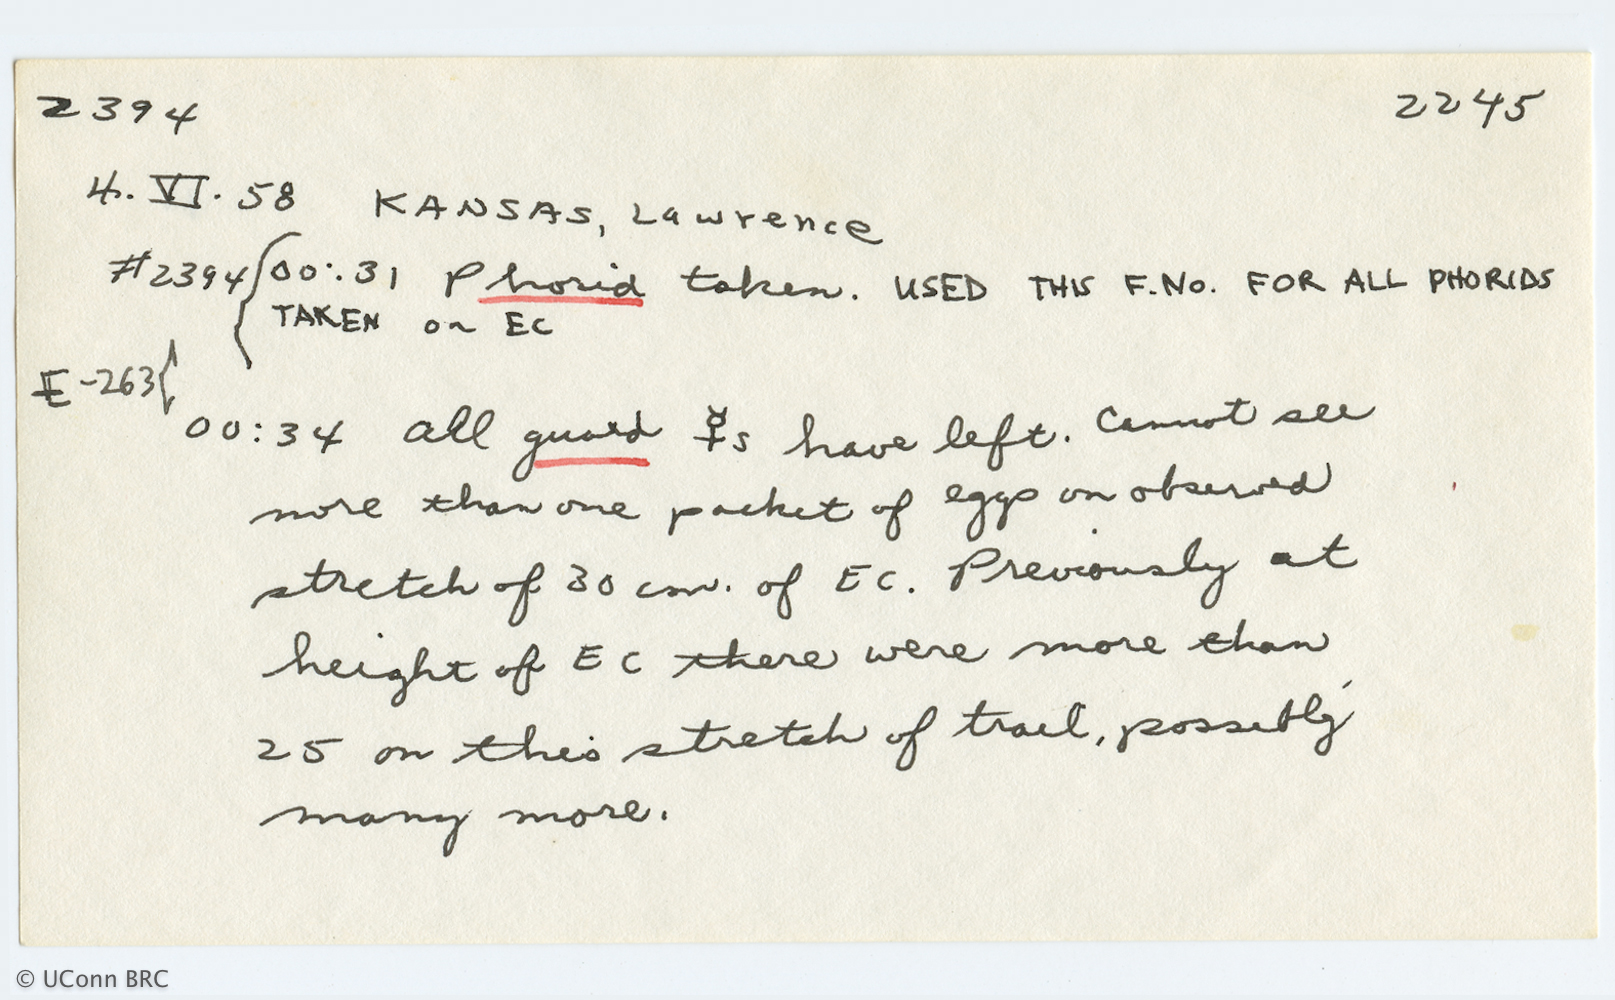 2394 2245
4. VI. 58 KANSAS, Lawrence
#2394 { 00:31 Phorid taken. USED THIS F.No. FOR ALL PHORIDS
TAKEN on EC
E-263 {
00:34 All guard ☿s have left. Cannot see
more than one packet of eggs on observed
stretch of 30 cm. of EC. Previously at
height of EC there were more than
25 on this stretch of trail, possibly
many more.
© UConn BRC